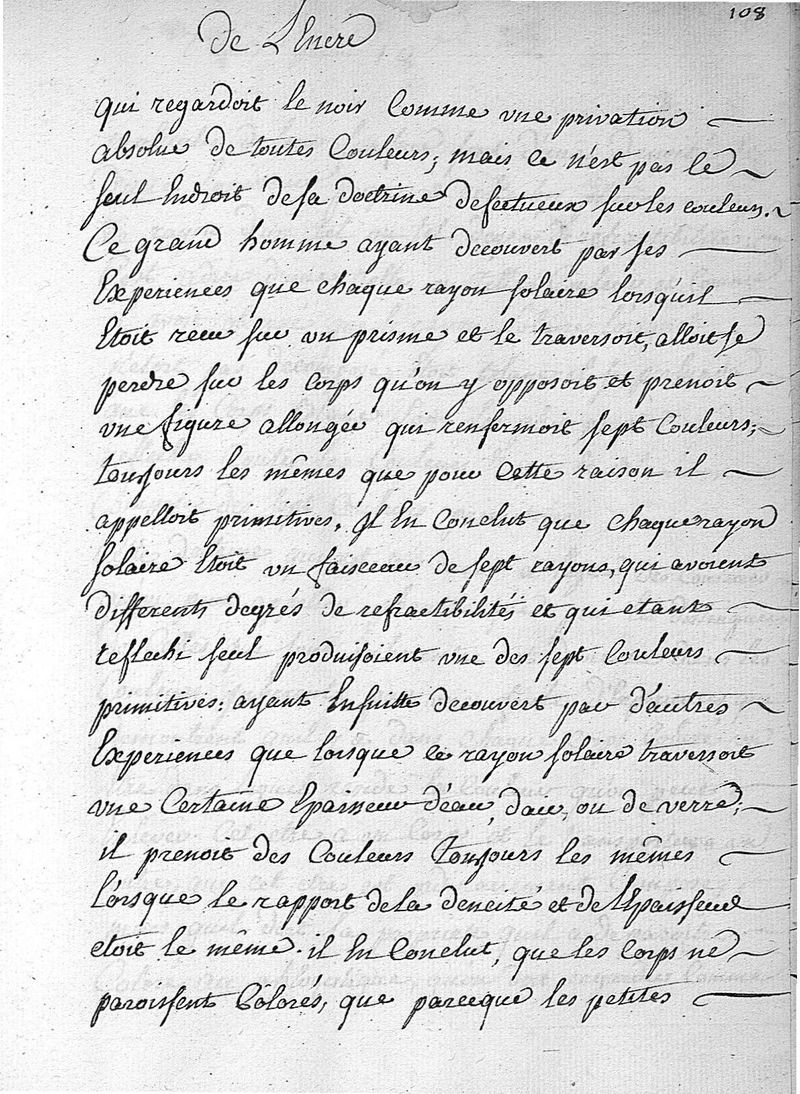 108
De L'Encre
qui regardoit le noir Comme vne privation
absolue de toutes Couleurs; mais ce n'est pas le
seul Endroit de sa doctrine defectueux sur les couleurs.
Ce grand homme ayant decouvert par ses
Experiences que chaque rayon solaire lorsqu'il
Etoit recu sur vn prisme et le traversoit, alloit se
perdre sur les Corps qu'on y opposoit et prenoit
vne figure allongée qui renfermoit sept Couleurs;
toujours les mêmes que pour Cette raison il
appelloit primitives. Il En Conclut que chaque rayon
solaire Etoit vn faisceau de sept rayons, qui avoient
differents degrés de refractibilités et qui etant
reflechi seul produisoient vne des sept Couleurs
primitives: ayant Ensuitte decouvert par d'autres
Experiences que lorsque ce rayon solaire traversoit
vne Certaine Epaisseur d'eau, d'air, ou de verre;
il prenoit des Couleurs toujours les mêmes
lorsque le rapport de la dencité et de l'Epaisseur
etoit le même. il En Conclut, que les Corps ne
paroissent Colorés, que parceque les petites